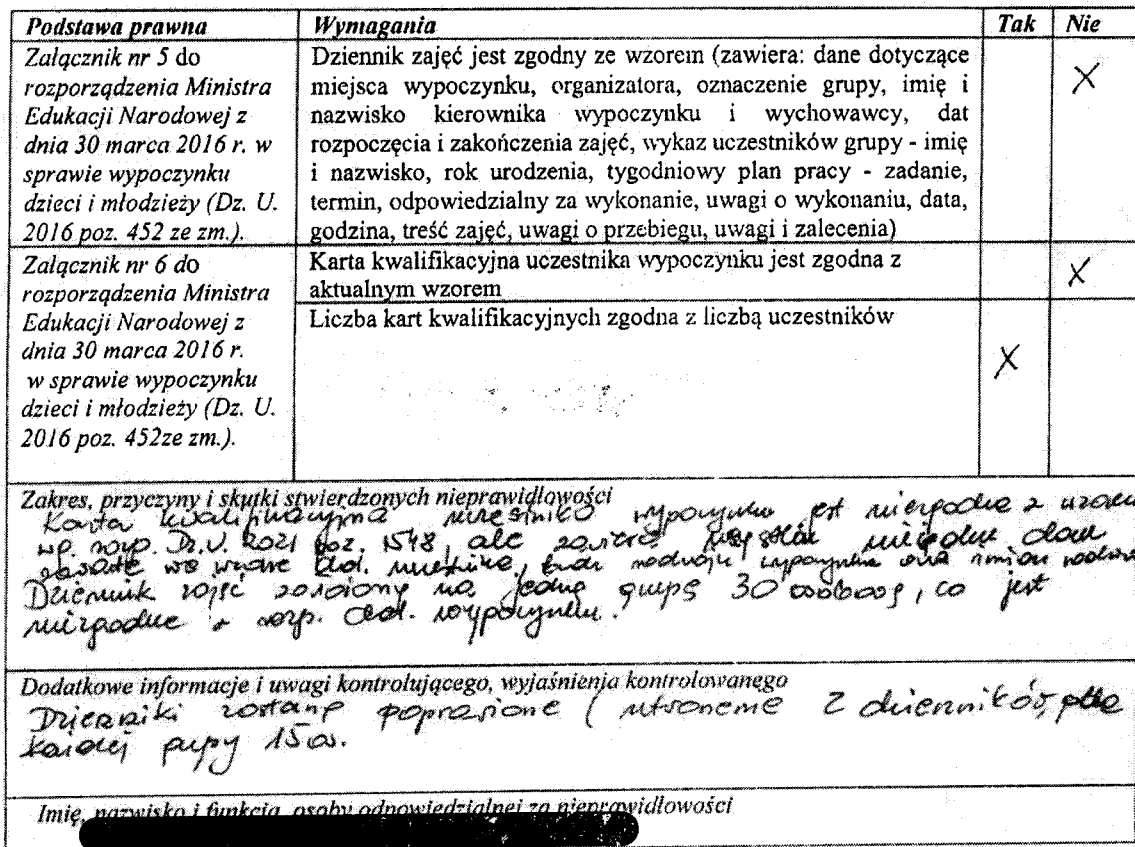 Podstawa prawna Wymagania Tak Nie
Załącznik nr 5 do
rozporządzenia Ministra
Edukacji Narodowej z
dnia 30 marca 2016 r. w
sprawie wypoczynku
dzieci i młodzieży (Dz. U.
2016 poz. 452 ze zm.).
Dziennik zajęć jest zgodny ze wzorem (zawiera: dane dotyczące
miejsca wypoczynku, organizatora, oznaczenie grupy, imię i
nazwisko kierownika wypoczynku i wychowawcy, dat
rozpoczęcia i zakończenia zajęć, wykaz uczestników grupy - imię
i nazwisko, rok urodzenia, tygodniowy plan pracy - zadanie,
termin, odpowiedzialny za wykonanie, uwagi o wykonaniu, data,
godzina, treść zajęć, uwagi o przebiegu, uwagi i zalecenia)
X
Załącznik nr 6 do
rozporządzenia Ministra
Edukacji Narodowej z
dnia 30 marca 2016 r.
w sprawie wypoczynku
dzieci i młodzieży (Dz. U.
2016 poz. 452ze zm.).
Karta kwalifikacyjna uczestnika wypoczynku jest zgodna z
aktualnym wzorem
X
Liczba kart kwalifikacyjnych zgodna z liczbą uczestników
X
Zakres, przyczyny i skutki stwierdzonych nieprawidłowości
Karta kwalifikacyjna uczestnika wypoczynku jest niezgodna z
rozp. Dz.U. 2021 poz. 1548, ale zawiera
dot. wypoczynku
Dziennik zajęć założony na jedną grupę 30 osobową, co jest
niezgodne z rozp. dot. wypoczynku.
Dodatkowe informacje i uwagi kontrolującego, wyjaśnienia kontrolowanego
Dzienniki zostaną poprawione ( 2 dzienników, dla
każdej grupy 15 os.
Imię, nazwisko i funkcja osoby odpowiedzialnej za nieprawidłowości